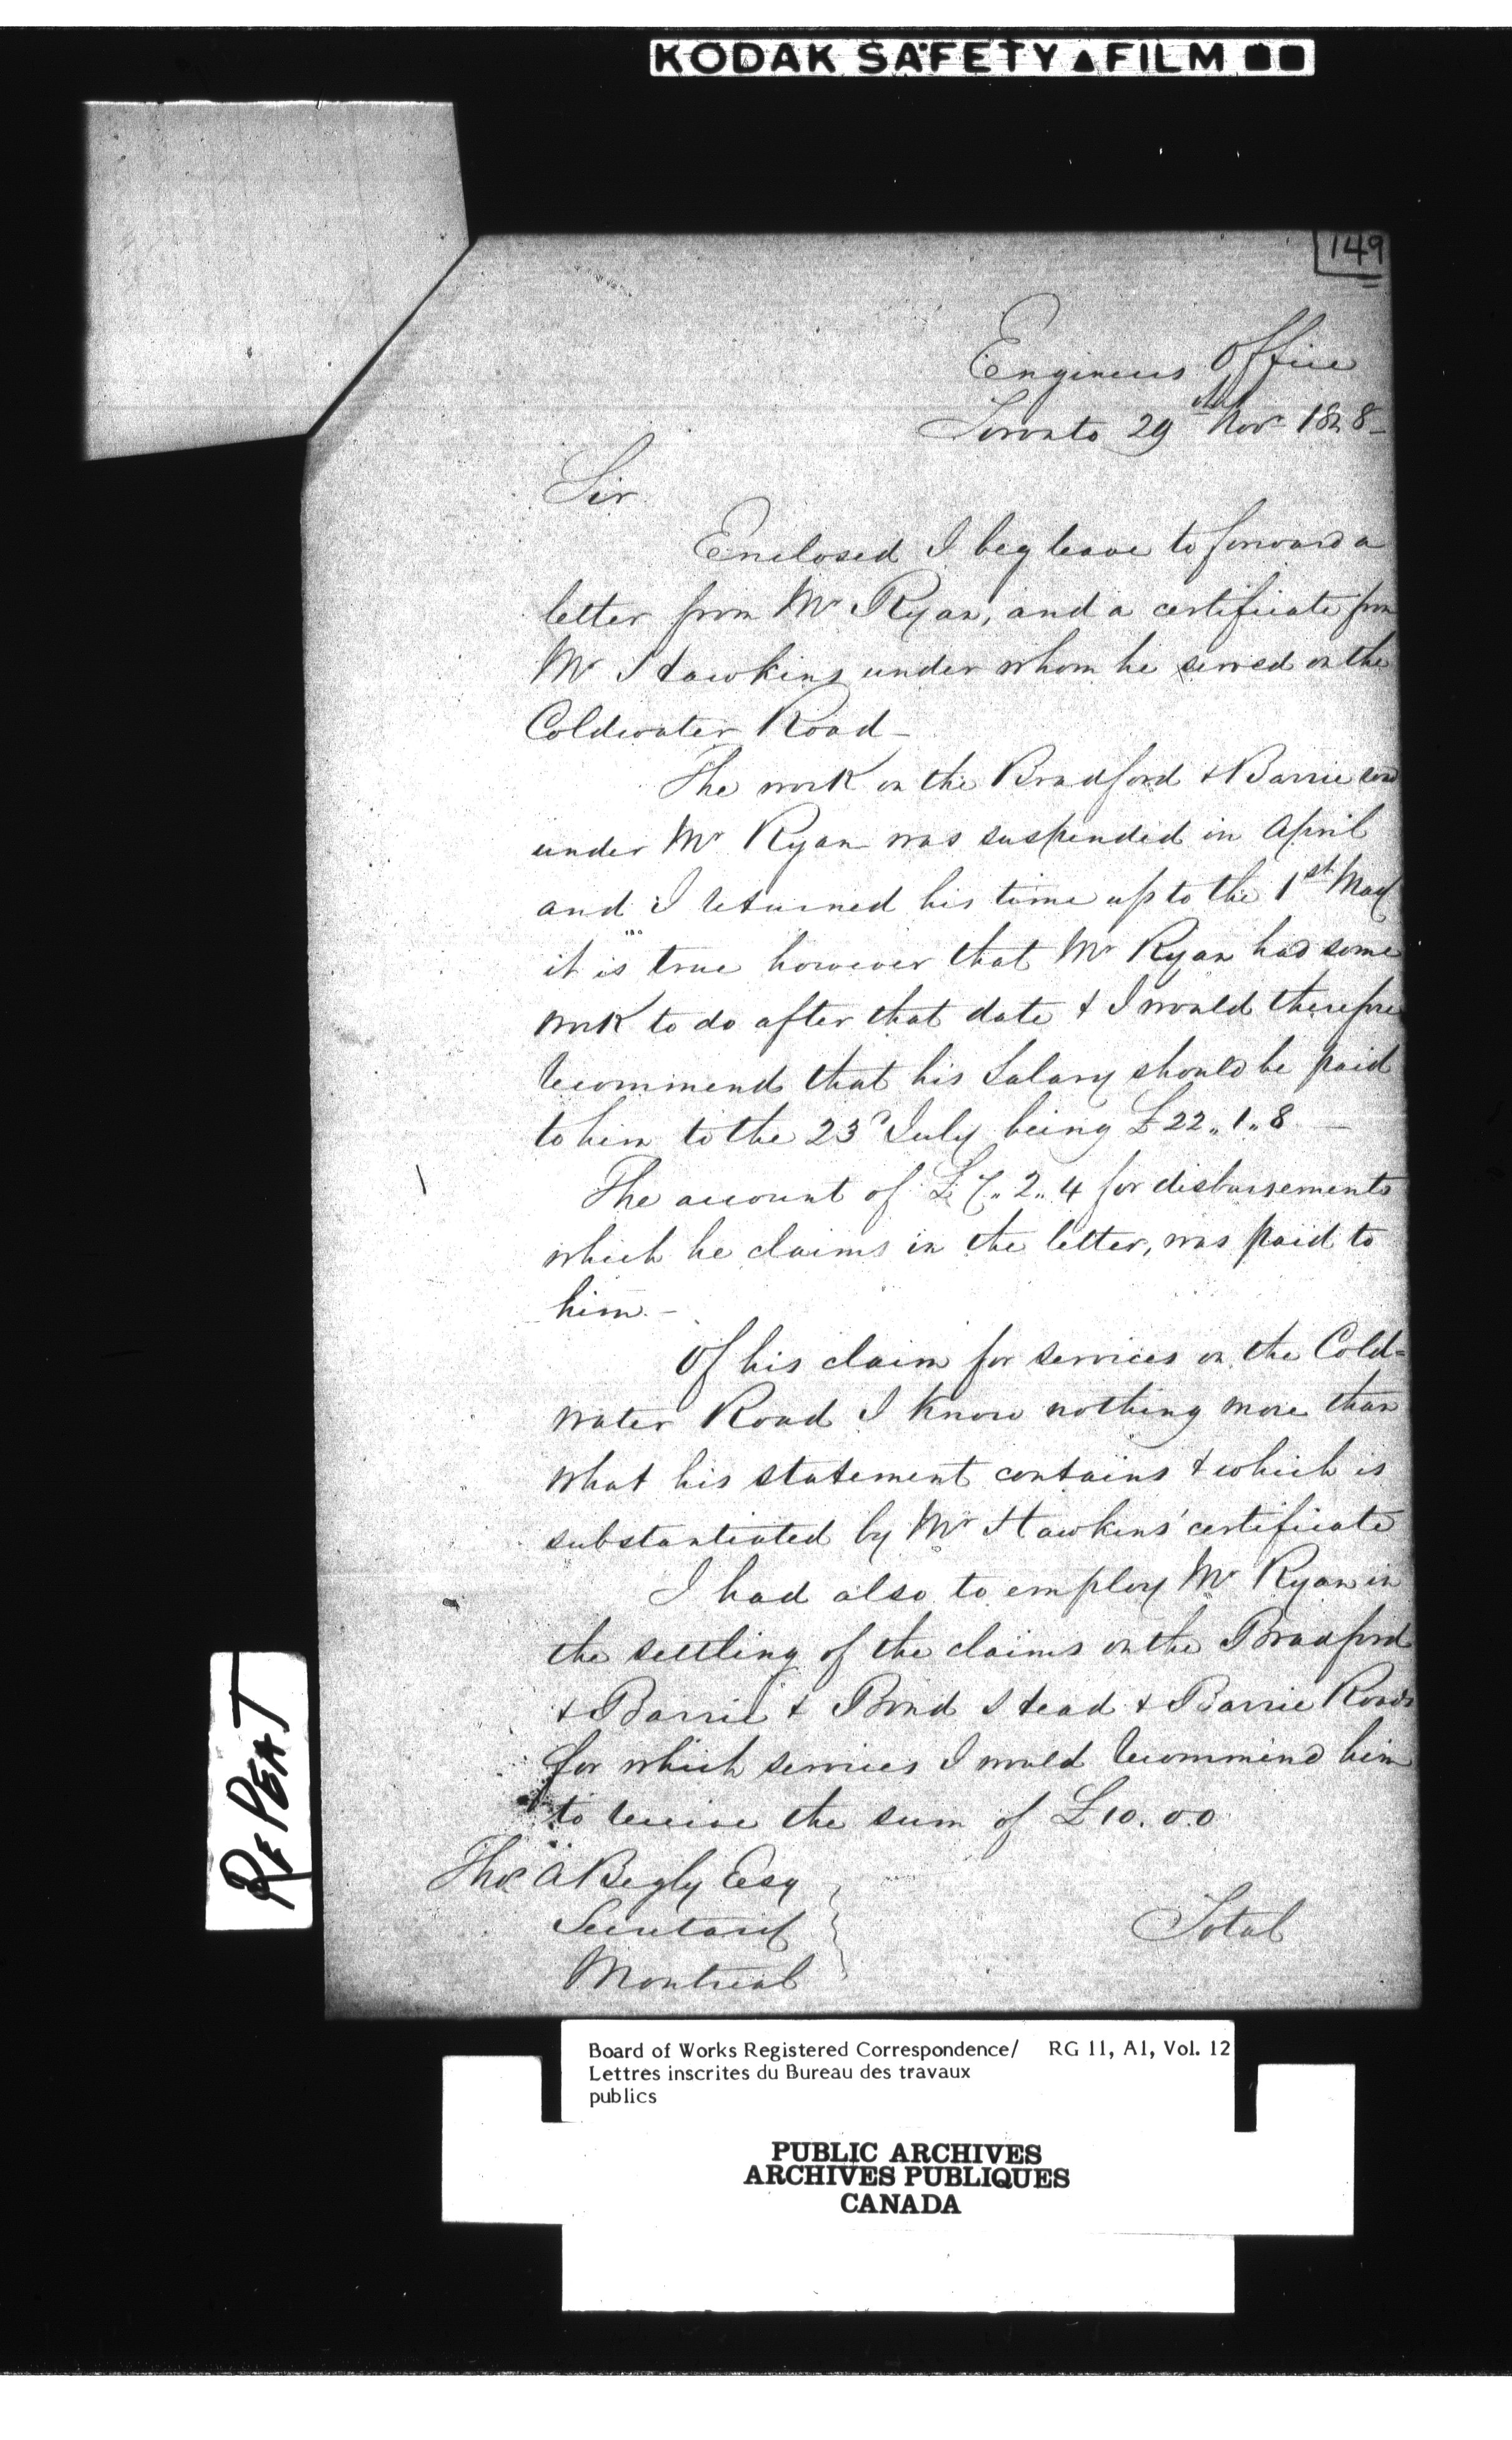 KODAK SAFETY FILM
149
Engineers Office
Toronto 29th Nov 1848
Sir
Enclosed I beg leave to forward a
letter from Mr Ryan, and a certificate from
Mr Hawkins under whom he served on the
Coldwater Road –
The work on the Bradford & Barrie road
under Mr Ryan was suspended in April
and I returned his time up to the 1st May
it is true however that Mr Ryan had some
work to do after that date & I would therefore
recommend that his Salary should be paid
to him to the 23d July being £22.. 1.. 8 –
The account of £7.. 2.. 4 for disbursements
which he claims in the letter, was paid to
him. –
Of his claim for services on the Cold=
water Road I know nothing more than
what his statement contains & which is
substantiated by Mr Hawkins' certificate
I had also to employ Mr Ryan in
the settling of the claims on the Bradford
& Barrie & Bond Head & Barrie Roads
for which services I would recommend him
to receive the sum of £10.0.0
Thos A Begly Esq
Secretary
Total
Montreal
REPEAT
Board of Works Registered Correspondence/ RG 11, A1, Vol. 12
Lettres inscrites du Bureau des travaux
publics
PUBLIC ARCHIVES
ARCHIVES PUBLIQUES
CANADA